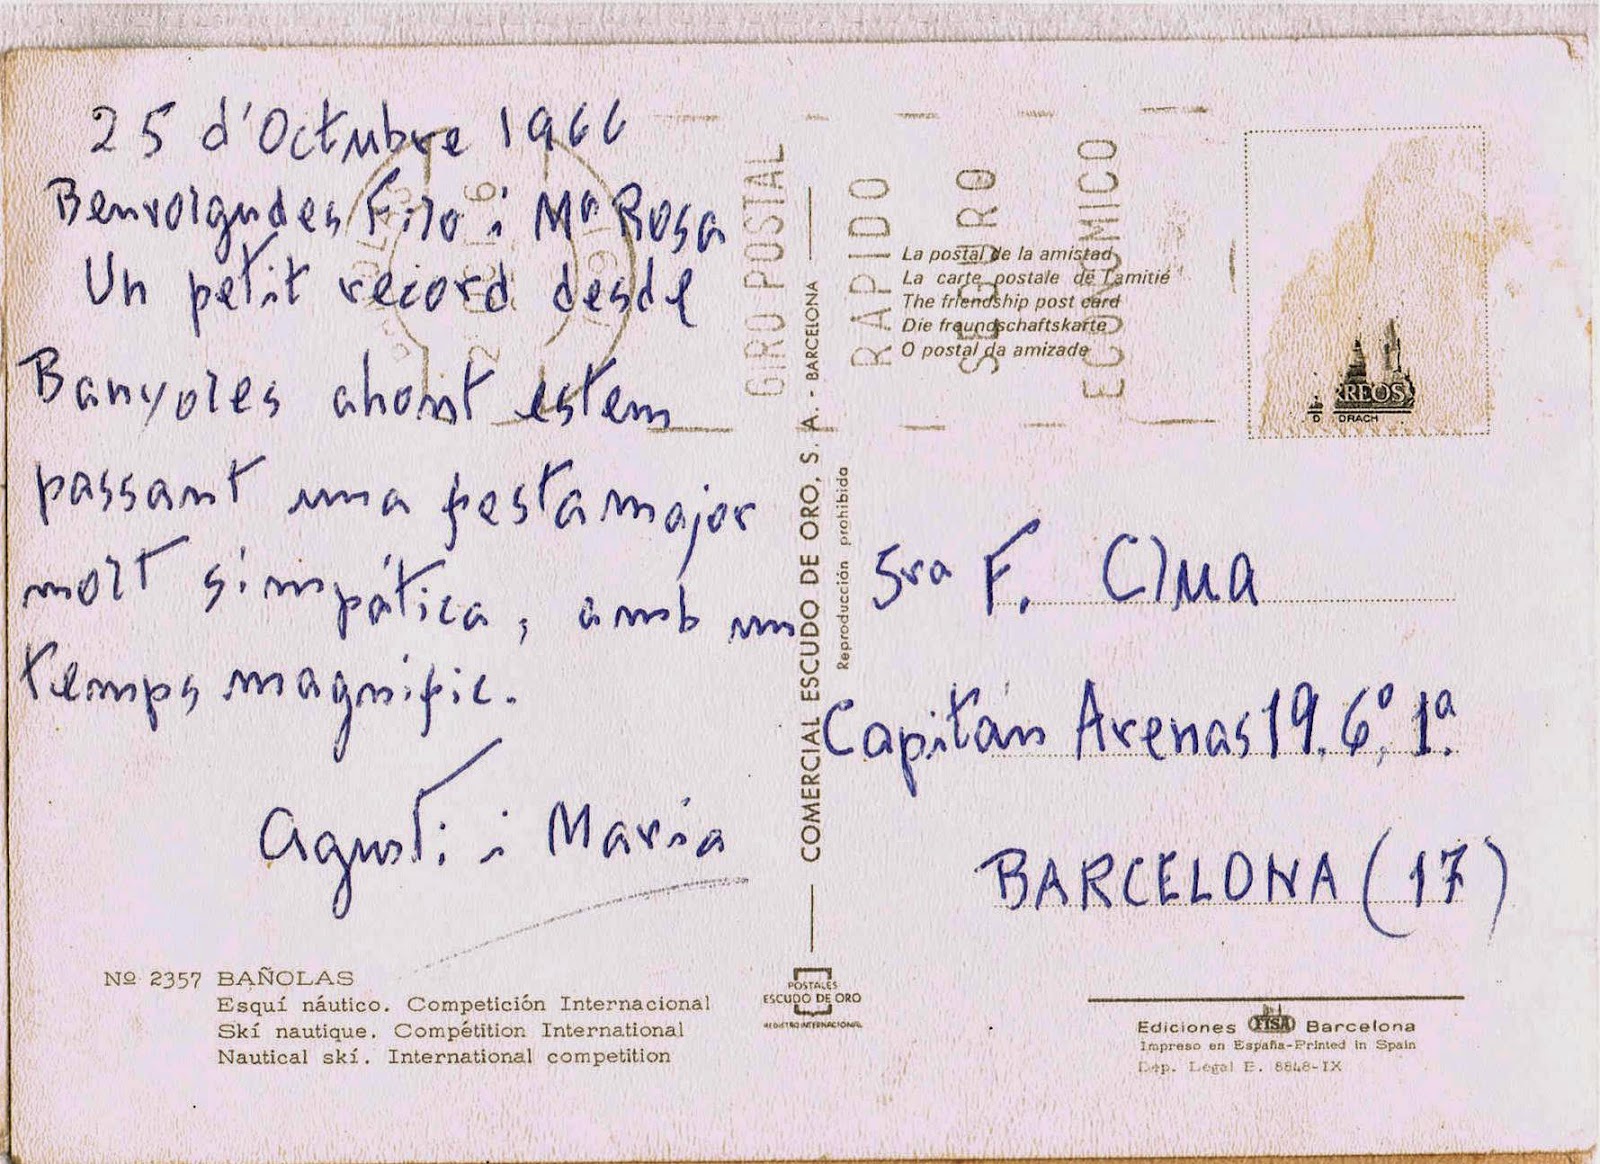 25 d'Octubre 1966
Benvolgudes Filo i Mª Rosa
Un petit record desde
Banyoles ahont estem
passant una festa major
molt simpática, amb un
temps magnific.
Agustí i Maria
Nº 2357 BAÑOLAS
Esquí náutico. Competición Internacional
Skí nautique. Compétition International
Nautical skí. International competition
COMERCIAL ESCUDO DE ORO, S. A. - BARCELONA
Reproducción prohibida
POSTALES
ESCUDO DE ORO
REGISTRO INTERNACIONAL
GIRO POSTAL
RAPIDO
SEGURO
ECONOMICO
La postal de la amistad
La carte postale de l'amitié
The friendship post card
Die freundschaftskarte
O postal da amizade
Sra F. Clua
Capitán Arenas 19. 6º, 1ª.
BARCELONA (17)
Ediciones FISA Barcelona
Impreso en España-Printed in Spain
Dep. Legal B. 8848-IX